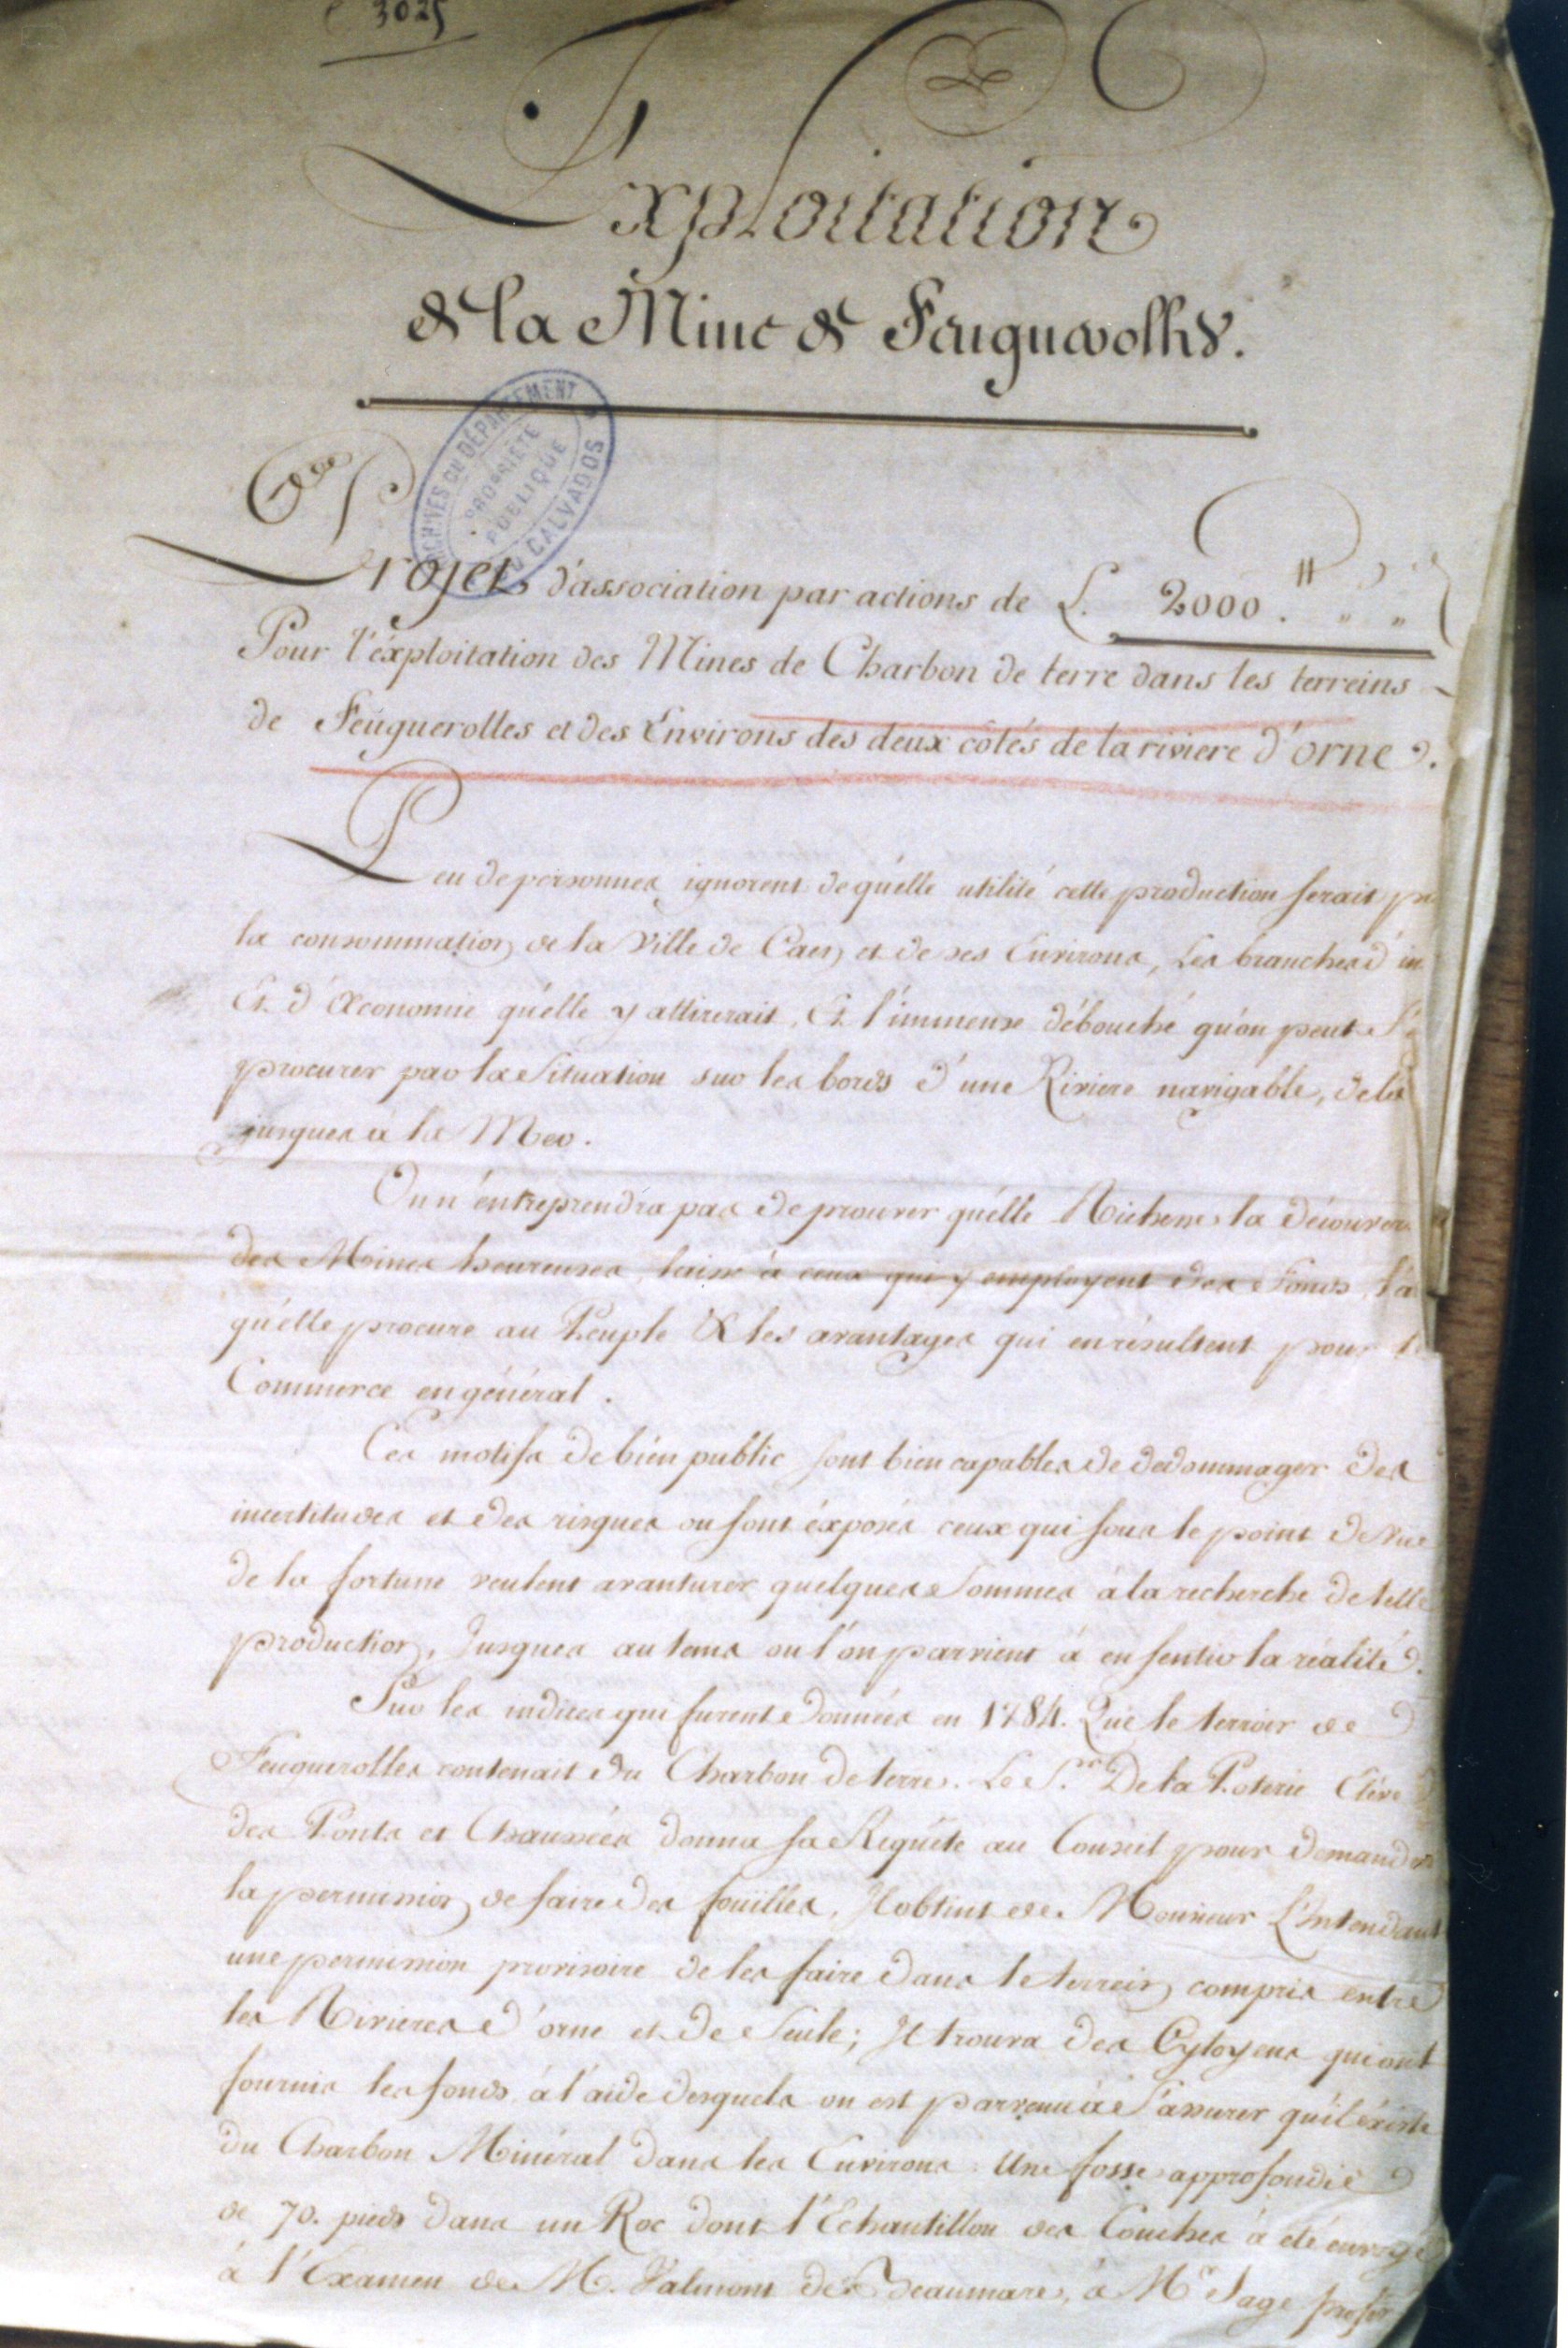 C 3025
Exploitation
de la Mine de Feuguerolles.
ARCHIVES DU DÉPARTEMENT DU CALVADOS
PROPRIÉTÉ PUBLIQUE
Projet d'association par actions de L. 2000.
Pour l'éxploitation des Mines de Charbon de terre dans les terreins
de Feuguerolles et des Environs des deux côtés de la riviere d'orne.
Peu de personnes ignorent de quélle utilité cette production serait pr
la consommation de la Ville de Caen et de ses Environs, Les branches d'in
Et d'Œconomie quélle y attirerait, Et l'immense débouché qu'on peut s'e
procurer par la Situation sur les bords d'une Riviere navigable, de là
jusques à la Mer.
On n'entreprendra pas de prouver quélle Richesse la découver
des Mines heureuses laisse à ceux qui y employent des Fonds, l'a
qu'elle procure au Peuple & les avantages qui en résultent pour le
Commerce en général.
Ces motifs de bien public sont bien capables de dedommager des
incertitudes et des risques ou sont éxposés ceux qui sous le point de vue
de la fortune veulent avanturer quelques Sommes à la recherche de telle
production, Jusques au tems ou l'on parvient à en sentir la réalité.
Sur les indices qui furent donnés en 1784. Que le terroir de
Feuguerolles contenait du Charbon de terre. Le Sr. De la Poterie Elève
des Ponts et Chaussées donna sa Requête au Conseil pour demander
la permission de faire des fouilles, Il obtint de Monsieur L'Intendant
une permission provisoire de les faire dans le terrein compris entre
les Rivieres d'orne et de Seule; Il trouva des Cytoyens qui ont
fournis les fonds à l'aide desquels on est parvenu à s'assurer qu'il éxiste
du Charbon Minéral dans les Environs. Une fosse approfondie
de 70. pieds dans un Roc dont l'Echantillon des Couches à été envoyé
à l'Examen de M. Valmont de Beaumare, à Mr. Sage profes